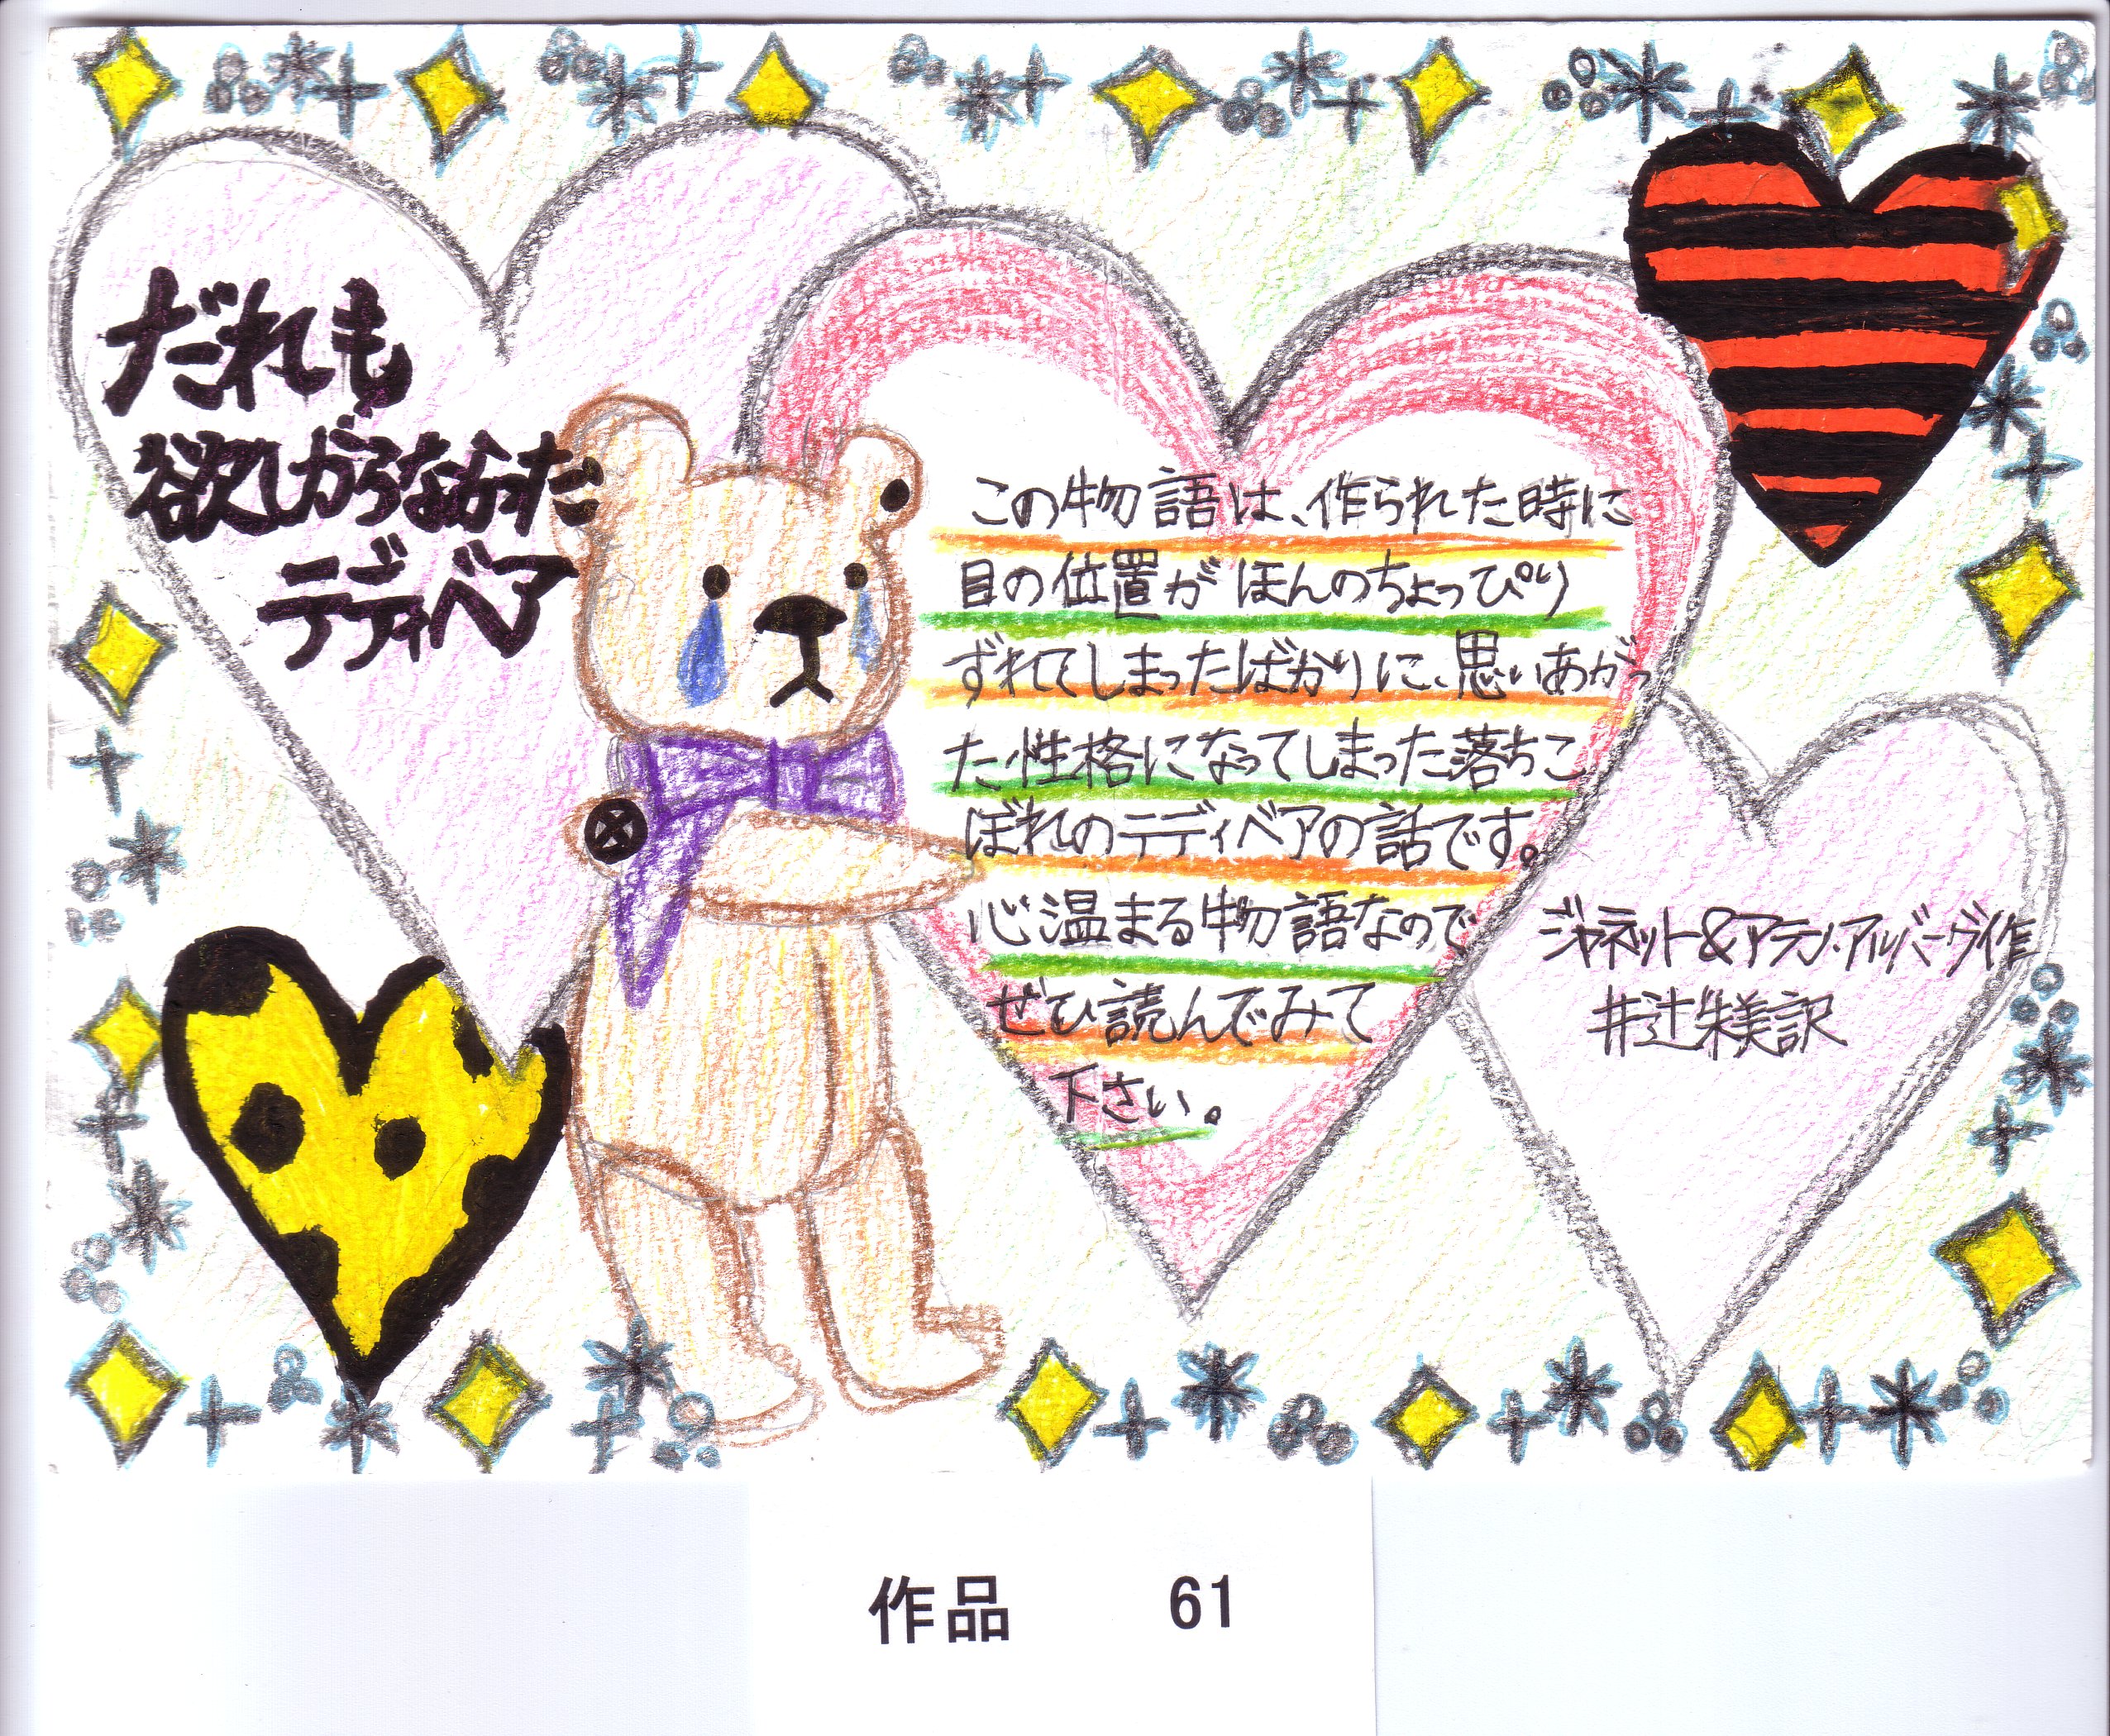 だれも
欲しがらなかった
テディベア
この物語は、作られた時に
目の位置がほんのちょっぴり
ずれてしまったばかりに、思いあがっ
た性格になってしまった落ちこ
ぼれのテディベアの話です。
心温まる物語なので
ぜひ読んでみて
下さい。
ジャネット&アラン・アルバーグ作
井辻朱美訳
作品 61